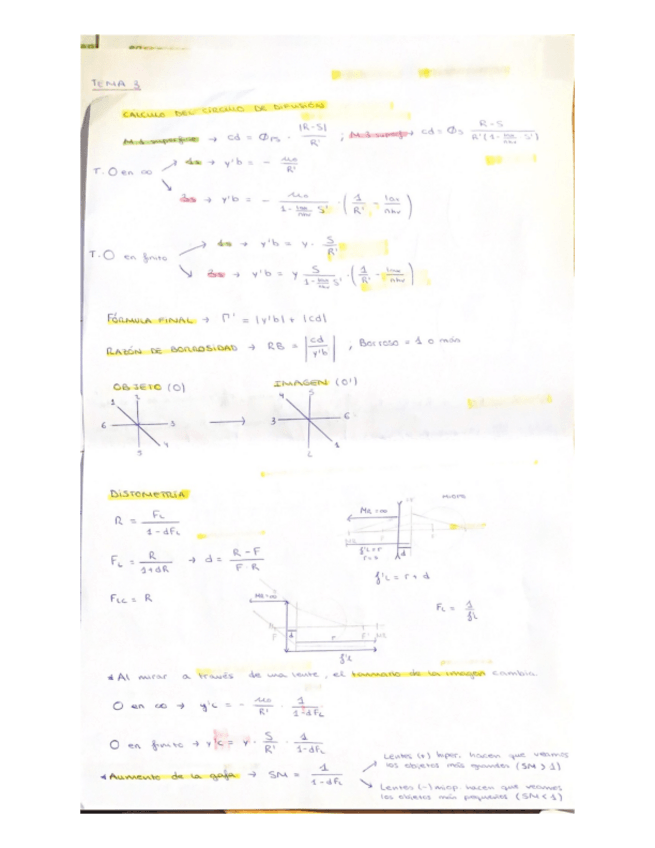 TEMA 3
CÁLCULO DEL CÍRCULO DE DIFUSIÓN
M 1 superficie → cd = ØPS · |R-S| / R' ; cd = ØS R-S / R'(1 - S')
T. O en ∞ → 1s → y'b = - / R'
→ y'b = - / 1 - S' · ( 1/R' - )
T. O en finito → 1s → y'b = y · S/R'
→ y'b = y S / 1 - S' · ( 1/R' - )
FÓRMULA FINAL → Γ' = |y'b| + |cd|
RAZÓN DE BORROSIDAD → RB = | cd / y'b | , Borroso = 1 o más
OBJETO (O) IMAGEN (O')
1 2 3 4 5 6 → 4 5 6 1 2 3
DISTOMETRÍA
R = FL / 1 - dFL
MR = ∞
f'L = r + d
FL = R / 1 + dR → d = R - F / F · R
FLC = R
MR = ∞
d r
f'L
FL = 1 / f'L
* Al mirar a través de una lente, el tamaño de la imagen cambia
O en ∞ → y'c = - / R' · 1 / 1 - dFL
O en finito → y'c = y · S/R' · 1 / 1 - dFL
* Aumento de la gafa → SM = 1 / 1 - dFL
Lentes (+) hiper. hacen que veamos
los objetos más grandes (SM > 1)
Lentes (-) miop. hacen que veamos
los objetos más pequeños (SM < 1)